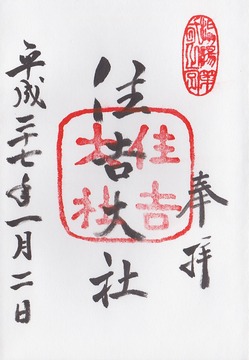 奉拝
住吉大社
住吉大社
平成二十七年一月二日